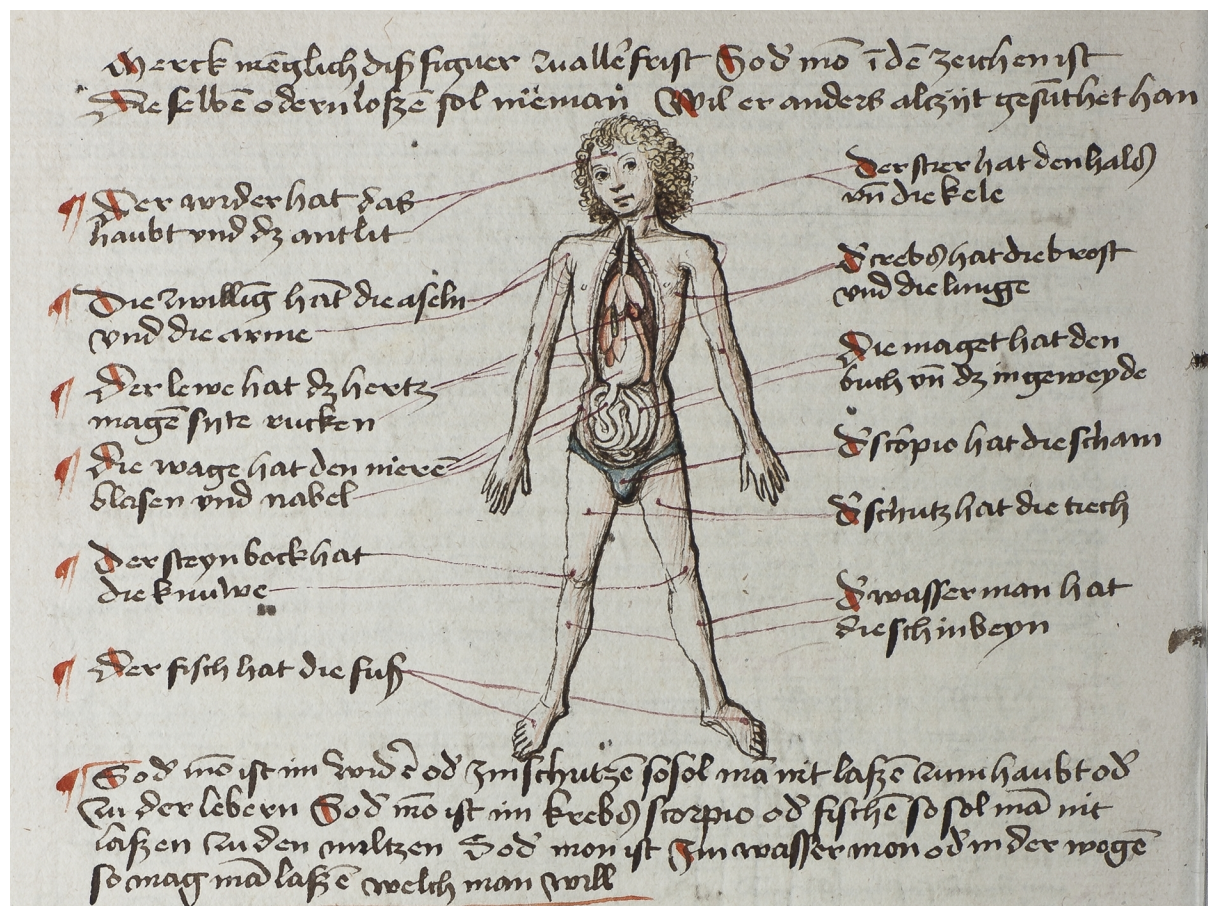 Merck mēglich diß figuer zu alle frist So d' mō ī dē zeichen ist
Die selbē odern loszē sol nieman Wil er anders alzijt gesūthet han
Der wider hat das
haubt vnd dz antlit
Die zwillīg hāt die aseln
vnd die arme
Der lewe hat dz hertz
magē syte rucken
Die wage hat den nierē
blasen vnd nabel
Der steynbock hat
die knuwe
Der fisch hat die fuß
Der stier hat den hals
vn̄ die kele
D' crebs hat die brost
vnd die lunge
Die maget hat den
buch vn̄ dz ingeweyde
D' scorpio hat die scham
D' schutz hat die tiech
D' wasserman hat
die schinbeyn
So d' mō ist im widē od' Im schutzē so sol mā nit laszē zum haubt od'
zu der lebern So d' mō ist im krebs scorpio od' fischē so sol mā nit
laszen zu den miltzen So d' mon ist Im wasser mon od' in der wogē
so mag mā laszē welch man will